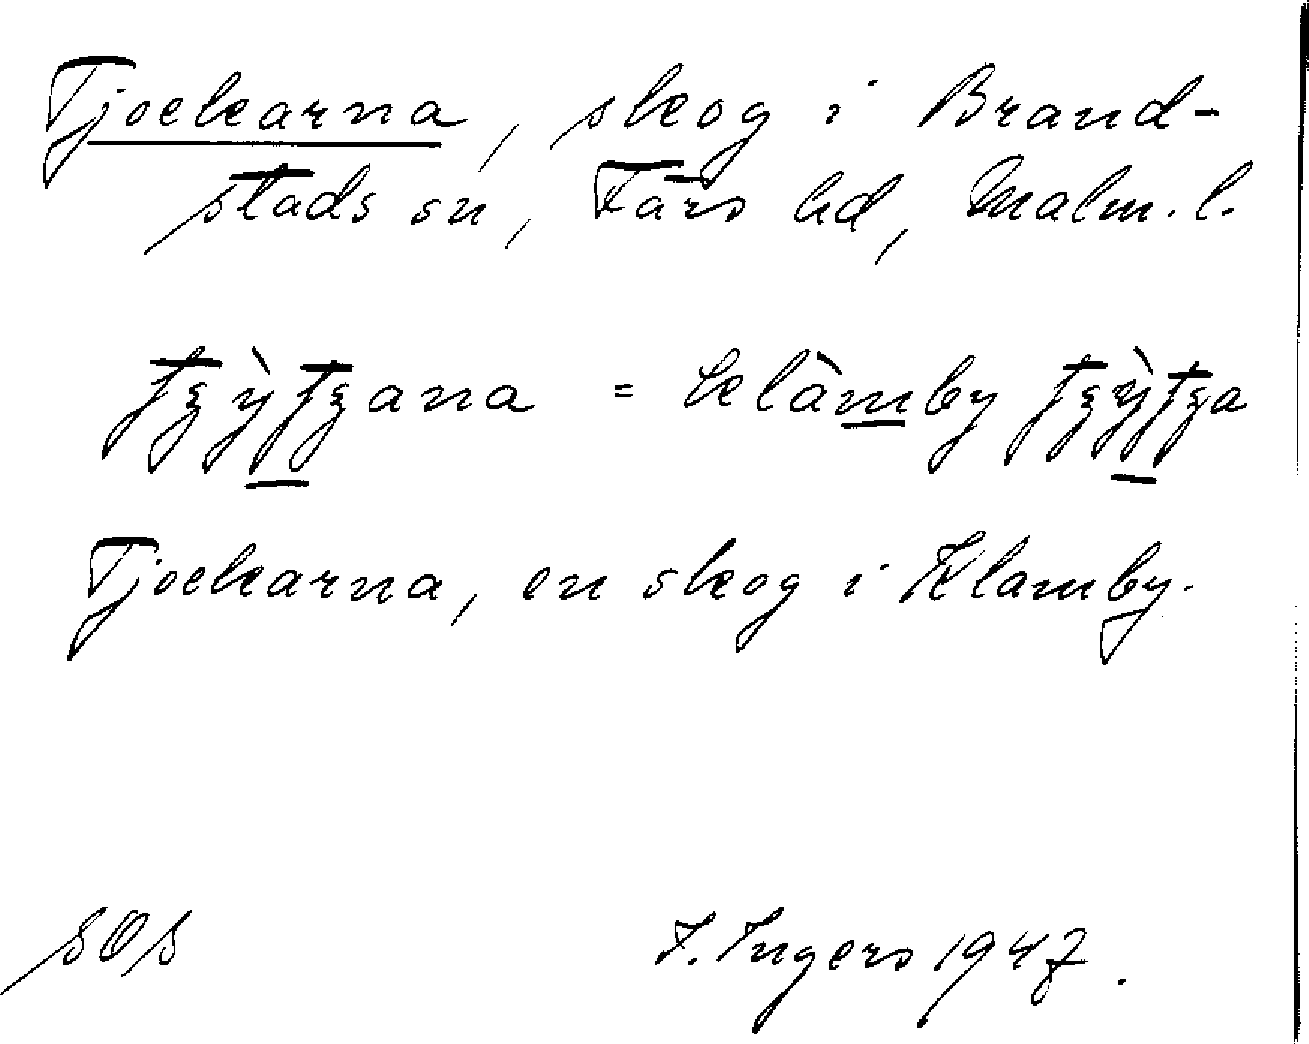 Tjockarna, skog i Brand-
stads sn, Färs hd, Malm. l.
= klàmby
Tjockarna, en skog i Klamby.
sOs I. Ingers 1947.